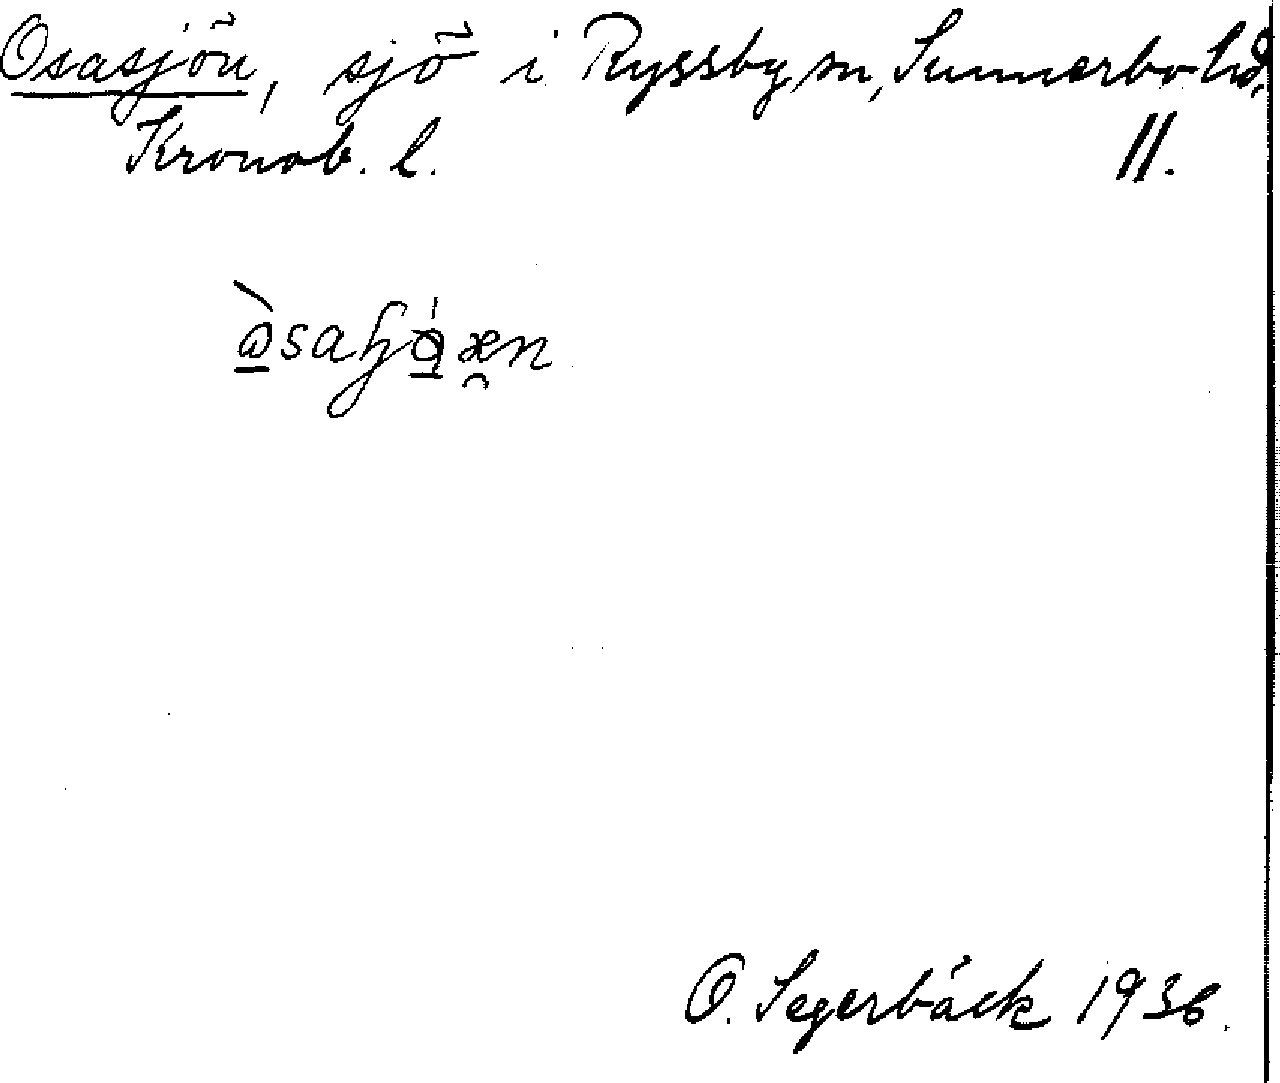 Osasjön, sjö i Ryssby sn, Sunnerbo hd,
Kronob. l. 11.
O. Segerbäck 1936.